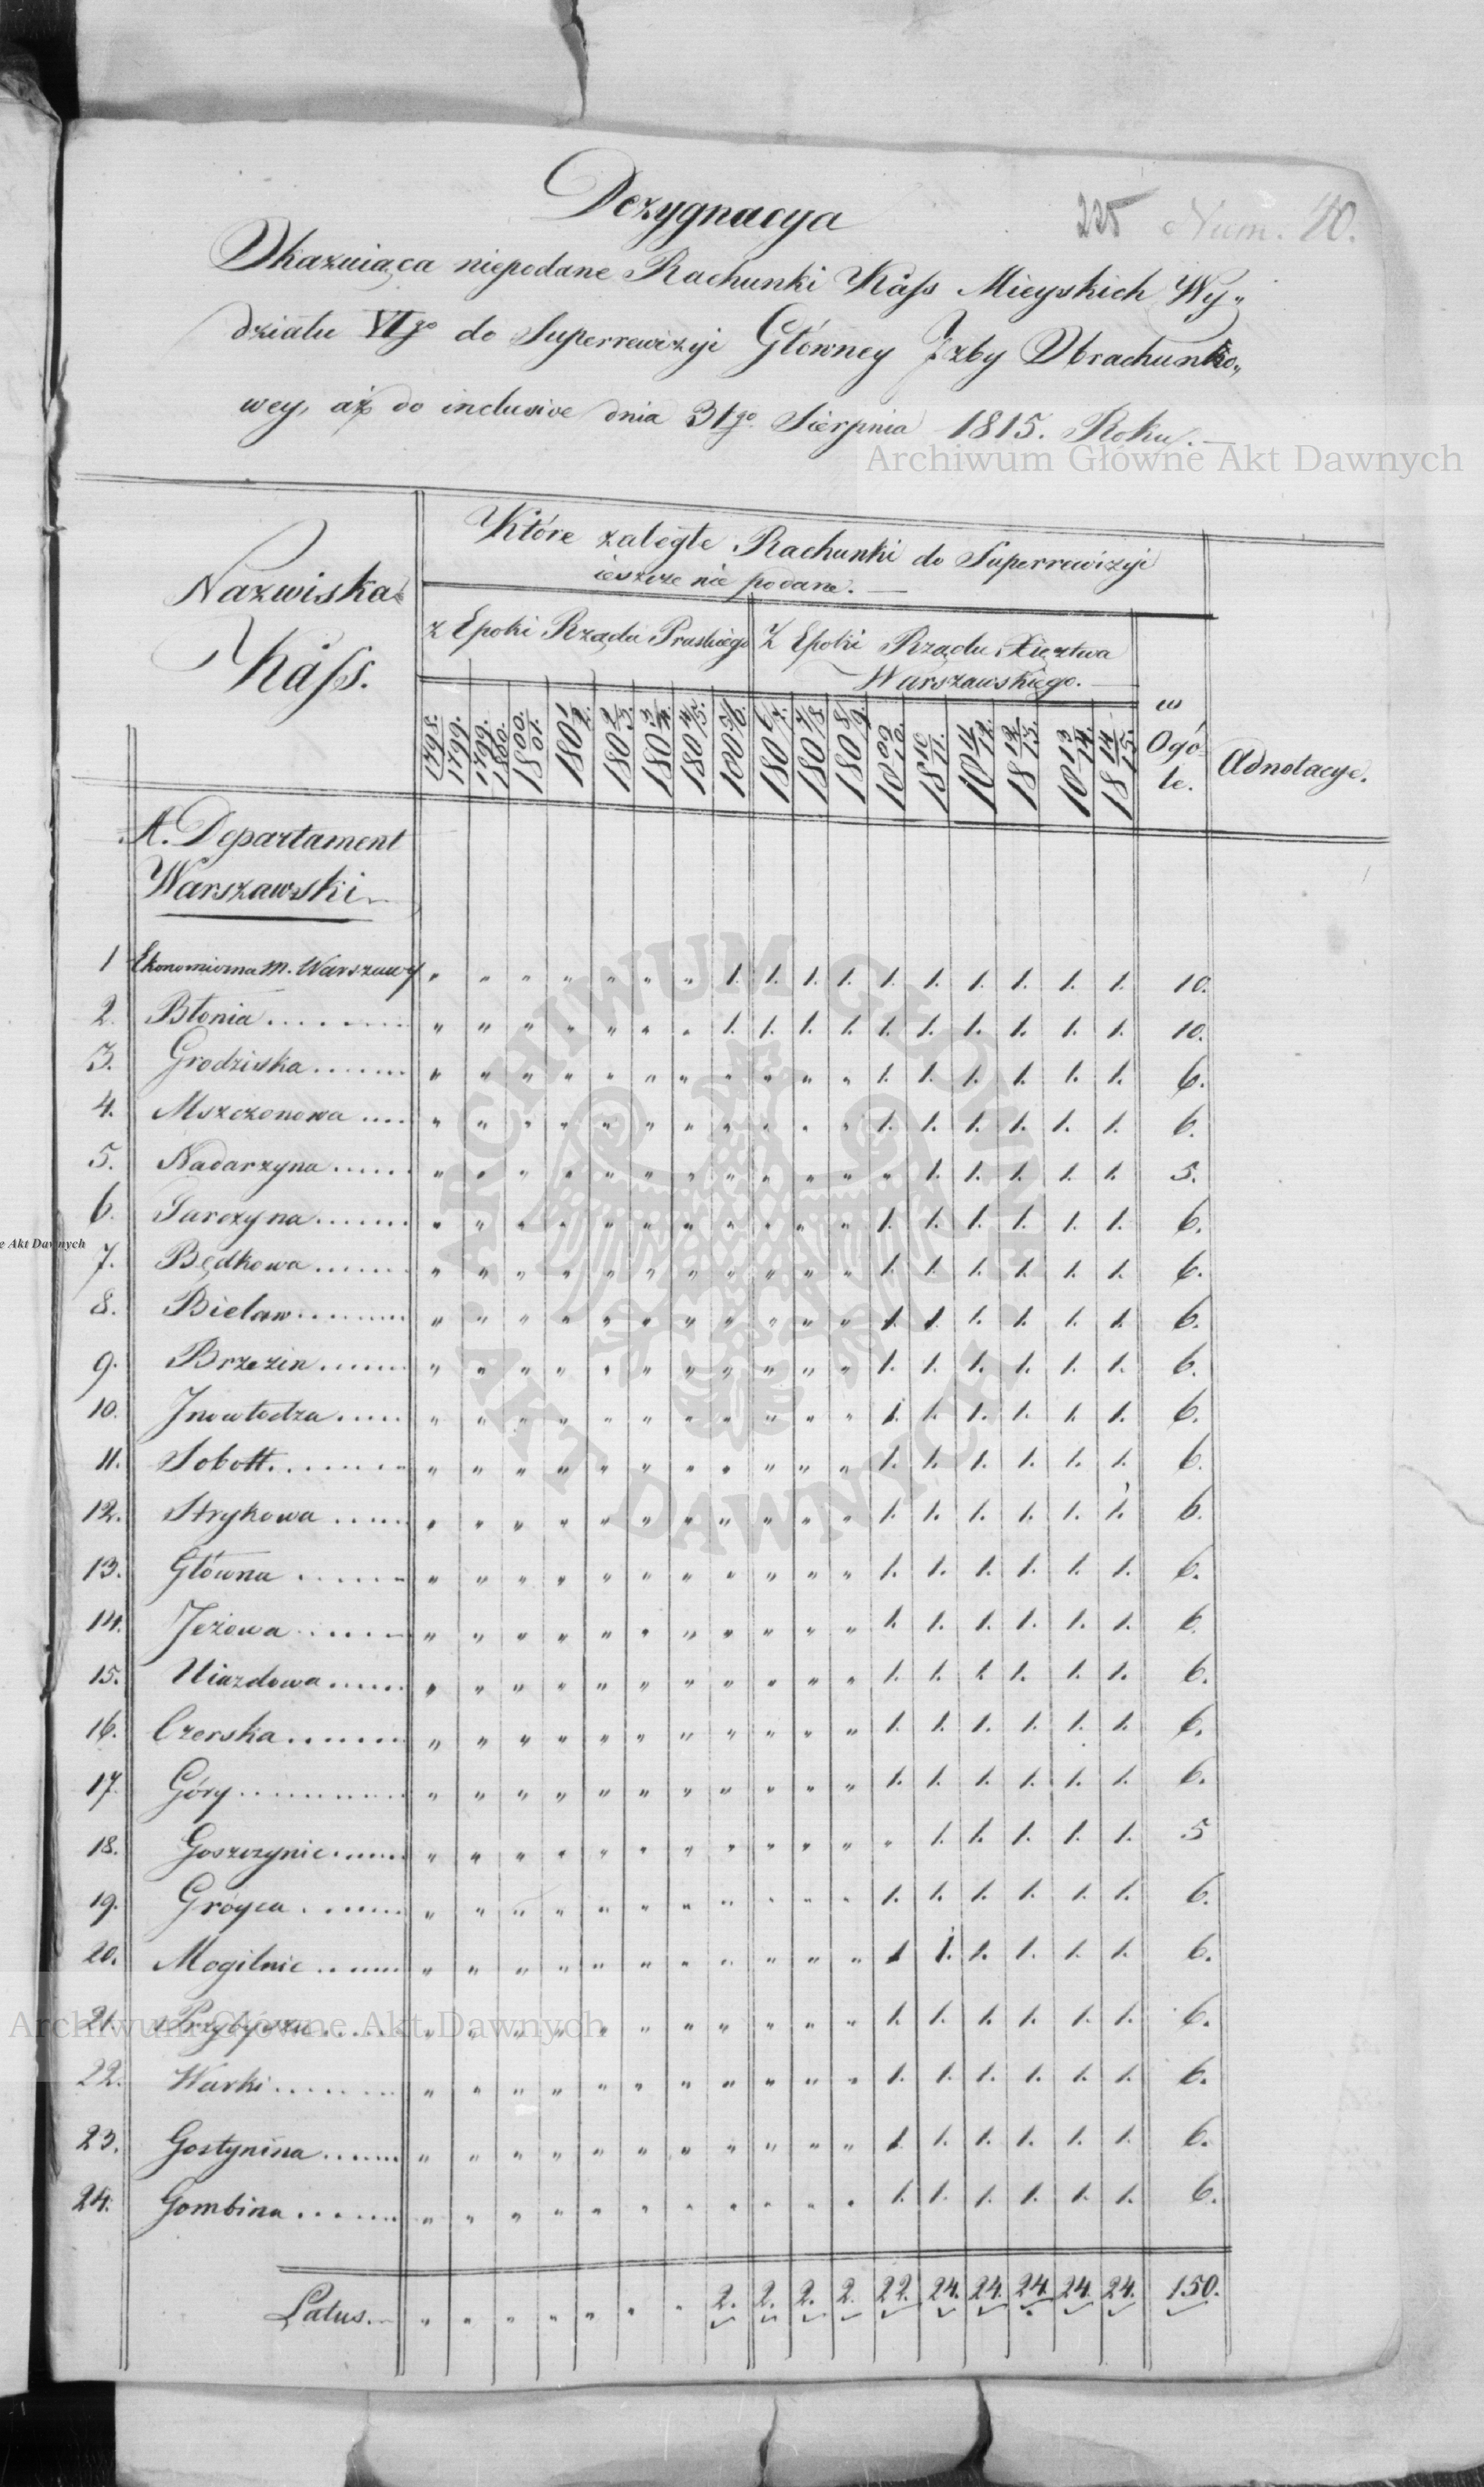 Dezygnacya
225 Num. 40.
Okazuiąca niepodane Rachunki Kass Mieyskich Wy„
działu VIgo do Superrewizyi Główney Izby Obrachunko„
wey, aż do inclusive dnia 31go Sierpnia 1815. Roku.
Archiwum Główne Akt Dawnych
Nazwiska Kass.
Które zaległe Rachunki do Superrewizyi
ieszcze nie podane.
z Epoki Rządu Pruskiego
Z Epoki Rządu Xięztwa
Warszawskiego.
w Ogó- le.
Adnotacye.
1798/1799. 1799/1800. 1800/01. 180 1/2. 180 2/3. 180 3/4. 180 4/5. 180 5/6. 180 6/7. 180 7/8. 180 8/9. 18 09/10. 18 10/11. 18 11/12. 18 12/13. 18 13/14. 18 14/15.
A. Departament
Warszawski
1 Ekonomiczna m. Warszawy „ „ „ „ „ „ „ 1. 1. 1. 1. 1. 1. 1. 1. 1. 1. 10.
2. Błonia „ „ „ „ „ „ „ 1. 1. 1. 1. 1. 1. 1. 1. 1. 1. 10.
3. Grodziska „ „ „ „ „ „ „ „ „ „ „ 1. 1. 1. 1. 1. 1. 6.
4. Mszczonowa „ „ „ „ „ „ „ „ „ „ „ 1. 1. 1. 1. 1. 1. 6.
5. Nadarzyna „ „ „ „ „ „ „ „ „ „ „ „ 1. 1. 1. 1. 1. 5.
6. Tarczyna „ „ „ „ „ „ „ „ „ „ „ 1. 1. 1. 1. 1. 1. 6.
7. Będkowa „ „ „ „ „ „ „ „ „ „ „ 1. 1. 1. 1. 1. 1. 6.
8. Bielaw „ „ „ „ „ „ „ „ „ „ „ 1. 1. 1. 1. 1. 1. 6.
9. Brzezin „ „ „ „ „ „ „ „ „ „ „ 1. 1. 1. 1. 1. 1. 6.
10. Inowłodza „ „ „ „ „ „ „ „ „ „ „ 1. 1. 1. 1. 1. 1. 6.
11. Sobott „ „ „ „ „ „ „ „ „ „ „ 1. 1. 1. 1. 1. 1. 6.
12. Strykowa „ „ „ „ „ „ „ „ „ „ „ 1. 1. 1. 1. 1. 1. 6.
13. Głowna „ „ „ „ „ „ „ „ „ „ „ 1. 1. 1. 1. 1. 1. 6.
14. Jeżowa „ „ „ „ „ „ „ „ „ „ „ 1. 1. 1. 1. 1. 1. 6.
15. Uiazdowa „ „ „ „ „ „ „ „ „ „ „ 1. 1. 1. 1. 1. 1. 6.
16. Czerska „ „ „ „ „ „ „ „ „ „ „ 1. 1. 1. 1. 1. 1. 6.
17. Góry „ „ „ „ „ „ „ „ „ „ „ 1. 1. 1. 1. 1. 1. 6.
18. Goszczynie „ „ „ „ „ „ „ „ „ „ „ „ 1. 1. 1. 1. 1. 5
19. Gróyca „ „ „ „ „ „ „ „ „ „ „ 1. 1. 1. 1. 1. 1. 6.
20. Mogilnie „ „ „ „ „ „ „ „ „ „ „ 1. 1. 1. 1. 1. 1. 6.
21. Przybyszu „ „ „ „ „ „ „ „ „ „ „ 1. 1. 1. 1. 1. 1. 6.
Archiwum Główne Akt Dawnych
22. Warki „ „ „ „ „ „ „ „ „ „ „ 1. 1. 1. 1. 1. 1. 6.
23. Gostynina „ „ „ „ „ „ „ „ „ „ „ 1. 1. 1. 1. 1. 1. 6.
24. Gombina „ „ „ „ „ „ „ „ „ „ „ 1. 1. 1. 1. 1. 1. 6.
Latus. „ „ „ „ „ „ „ 2. 2. 2. 2. 22. 24. 24. 24. 24. 24. 150.
e Akt Dawnych
ARCHIWUM GŁÓWNE AKT DAWNYCH